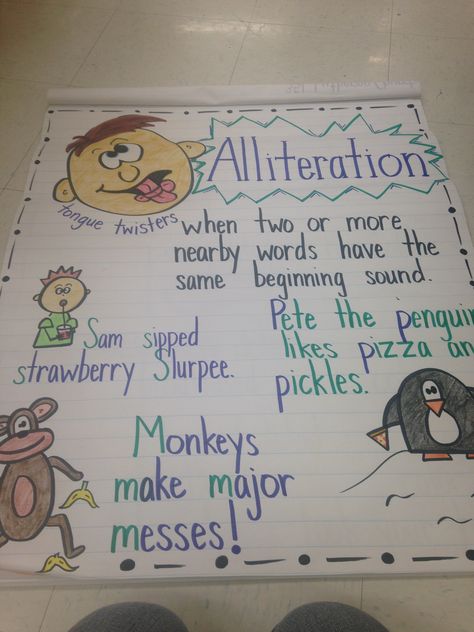 Alliteration
tongue twisters
when two or more
nearby words have the
same beginning sound.
Sam sipped
strawberry Slurpee.
Pete the penguin
likes pizza an
pickles.
Monkeys
make major
messes!